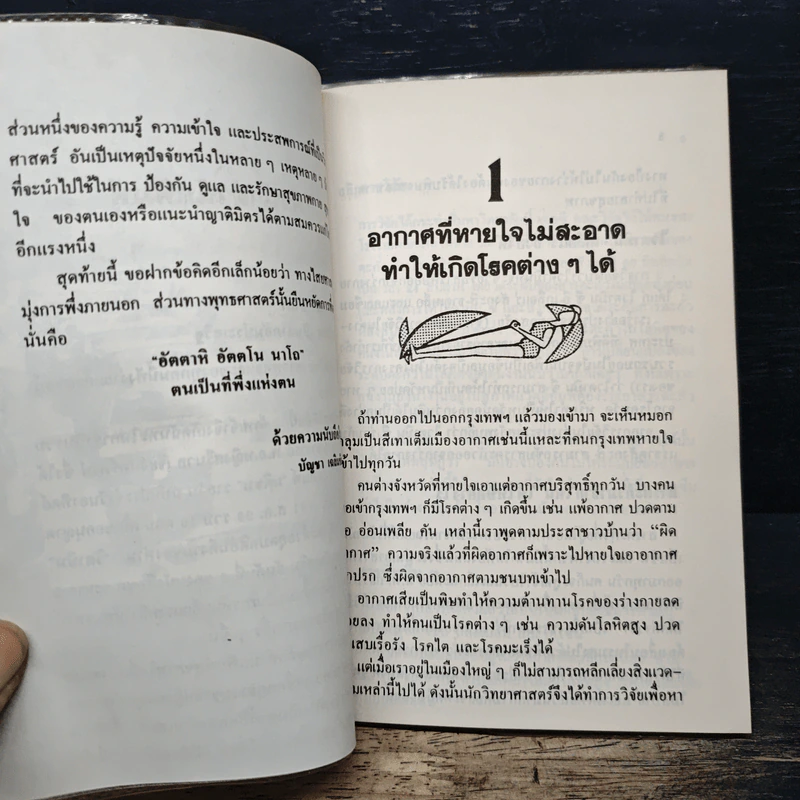 ส่วนหนึ่งของความรู้ ความเข้าใจ และประสพการณ์ที่เป็น
ศาสตร์ อันเป็นเหตุปัจจัยหนึ่งในหลาย ๆ เหตุหลาย ๆ
ที่จะนำไปใช้ในการ ป้องกัน ดูแล และรักษาสุขภาพกาย
ใจ ของตนเองหรือแนะนำญาติมิตรได้ตามสมควร
อีกแรงหนึ่ง
สุดท้ายนี้ ขอฝากข้อคิดอีกเล็กน้อยว่า ทางไสยศาส
มุ่งการพึ่งภายนอก ส่วนทางพุทธศาสตร์นั้นยืนหยัดการ
นั่นคือ
"อัตตาหิ อัตตโน นาโถ"
ตนเป็นที่พึ่งแห่งตน
ด้วยความนับถือ
บัญชา
1
อากาศที่หายใจไม่สะอาด
ทำให้เกิดโรคต่าง ๆ ได้
ถ้าท่านออกไปนอกกรุงเทพฯ แล้วมองเข้ามา จะเห็นหมอก
ลุมเป็นสีเทาเต็มเมืองอากาศเช่นนี้แหละที่คนกรุงเทพหายใจ
ข้าไปทุกวัน
คนต่างจังหวัดที่หายใจเอาแต่อากาศบริสุทธิ์ทุกวัน บางคน
อเข้ากรุงเทพฯ ก็มีโรคต่าง ๆ เกิดขึ้น เช่น แพ้อากาศ ปวดตาม
อ อ่อนเพลีย คัน เหล่านี้เราพูดตามประสาชาวบ้านว่า "ผิด
ากาศ" ความจริงแล้วที่ผิดอากาศก็เพราะไปหายใจเอาอากาศ
กปรก ซึ่งผิดจากอากาศตามชนบทเข้าไป
อากาศเสียเป็นพิษทำให้ความต้านทานโรคของร่างกายลด
ยลง ทำให้คนเป็นโรคต่าง ๆ เช่น ความดันโลหิตสูง ปวด
เสบเรื้อรัง โรคไต และโรคมะเร็งได้
แต่เมื่อเราอยู่ในเมืองใหญ่ ๆ ก็ไม่สามารถหลีกเลี่ยงสิ่งแวด-
มเหล่านี้ไปได้ ดังนั้นนักวิทยาศาสตร์จึงได้ทำการวิจัยเพื่อหา